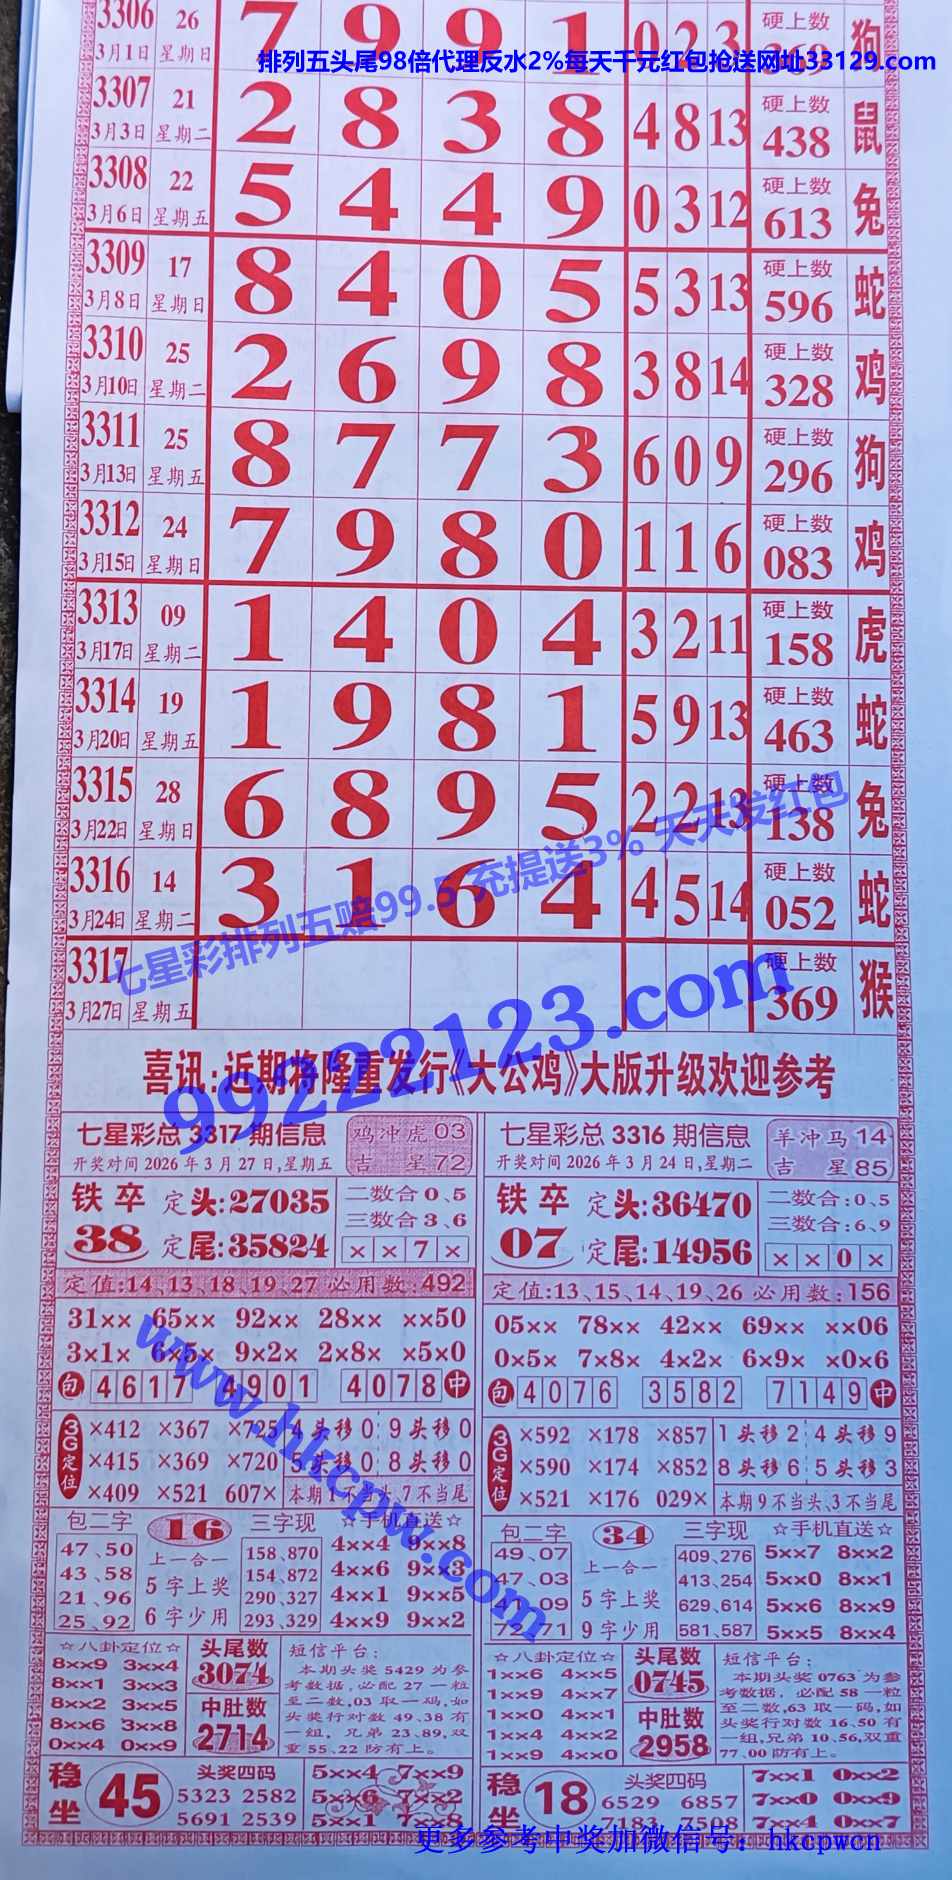 3306 26 7 9 9 1 0 2 3 硬上数 狗
3月1日 星期日 369
排列五头尾98倍代理反水2%每天千元红包抢送网址33129.com
3307 21 2 8 3 8 4 8 13 硬上数 鼠
3月3日 星期二 438
3308 22 5 4 4 9 0 3 12 硬上数 兔
3月6日 星期五 613
3309 17 8 4 0 5 5 3 13 硬上数 蛇
3月8日 星期日 596
3310 25 2 6 9 8 3 8 14 硬上数 鸡
3月10日 星期二 328
3311 25 8 7 7 3 6 0 9 硬上数 狗
3月13日 星期五 296
3312 24 7 9 8 0 1 1 6 硬上数 鸡
3月15日 星期日 083
3313 09 1 4 0 4 3 2 11 硬上数 虎
3月17日 星期二 158
3314 19 1 9 8 1 5 9 13 硬上数 蛇
3月20日 星期五 463
3315 28 6 8 9 5 2 2 13 硬上数 兔
3月22日 星期日 138
3316 14 3 1 6 4 4 5 14 硬上数 蛇
3月24日 星期二 052
七星彩排列五赔99.5 充提送3% 天天发红包
3317 硬上数 猴
3月27日 星期五 369
99222123.com
喜讯:近期将隆重发行《大公鸡》大版升级欢迎参考
七星彩总 3317 期信息 鸡冲虎 03
开奖时间 2026 年 3 月 27 日,星期五 吉 星 72
铁卒 定头:27035 二数合 0、5
38 定尾:35824 三数合 3、6
× × 7 ×
定值:14、13、18、19、27 必用数:492
31×× 65×× 92×× 28×× ××50
3×1× 6×5× 9×2× 2×8× ×5×0
包 4617 4901 4078 中
3G定位
×412 ×367 ×725 4头移0 9头移0
×415 ×369 ×720 5头移0 8头移0
×409 ×521 607× 本期1不当头、7不当尾
包二字 16 三字现 ☆手机直送☆
47、50 上一合一 158、870 4××4 9××8
43、58 5字上奖 154、872 4××6 9××3
21、96 6字少用 290、327 4××1 9××5
25、92 293、329 4××9 9××2
☆八卦定位☆ 头尾数 短信平台:
8××9 3××4 3074 本期头奖 5429 为参
8××1 3××3 考数据,必配 27 一粒
8××2 3××5 中肚数 至二数,03 取一码,如
8××6 3××8 2714 头奖行对数 49、38 有
0××4 0××9 一组,兄弟 23、89,双
重 55、22 防有上。
稳坐 45 头奖四码 5××4 7××9
5323 2582 5××6 7××2
5691 2539 5××1 7××8
七星彩总 3316 期信息 羊冲马 14
开奖时间 2026 年 3 月 24 日,星期二 吉 星 85
铁卒 定头:36470 二数合:0、5
07 定尾:14956 三数合:6、9
× × 0 ×
定值:13、15、14、19、26 必用数:156
05×× 78×× 42×× 69×× ××06
0×5× 7×8× 4×2× 6×9× ×0×6
包 4076 3582 7149 中
3G定位
×592 ×178 ×857 1头移2 4头移9
×590 ×174 ×852 8头移6 5头移3
×521 ×176 029× 本期9不当头、3不当尾
包二字 34 三字现 ☆手机直送☆
49、07 上一合一 409、276 5××7 8××2
47、03 5字上奖 413、254 5××0 8××1
41、09 9字少用 629、614 5××6 8××9
72、71 581、587 5××5 8××4
☆八卦定位☆ 头尾数 短信平台:
1××6 4××5 0745 本期头奖 0763 为参
1××9 4××7 考数据,必配 58 一粒
1××0 4××1 中肚数 至二数,63 取一码,如
1××4 4××2 2958 头奖行对数 16、50 有
1××9 4××0 一组,兄弟 10、56,双重
77、00 防有上。
稳坐 18 头奖四码 7××1 0××2
6529 6857 7××0 0××9
7183 7508 7××4 0××7
www.hkcpw.com
更多参考中奖加微信号:hkcpwcn